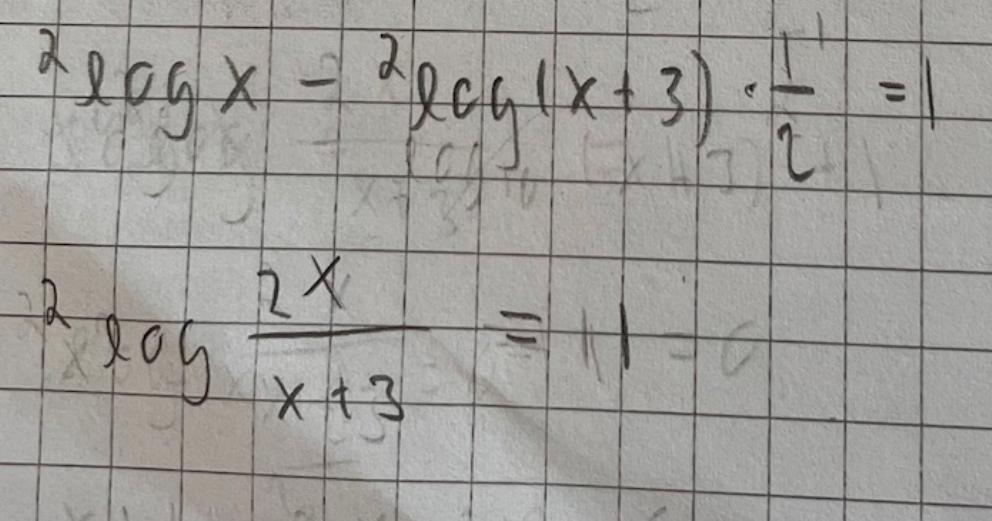 ²log x - ²log(x+3) · 1/2 = 1
²log 2x/(x+3) = 1